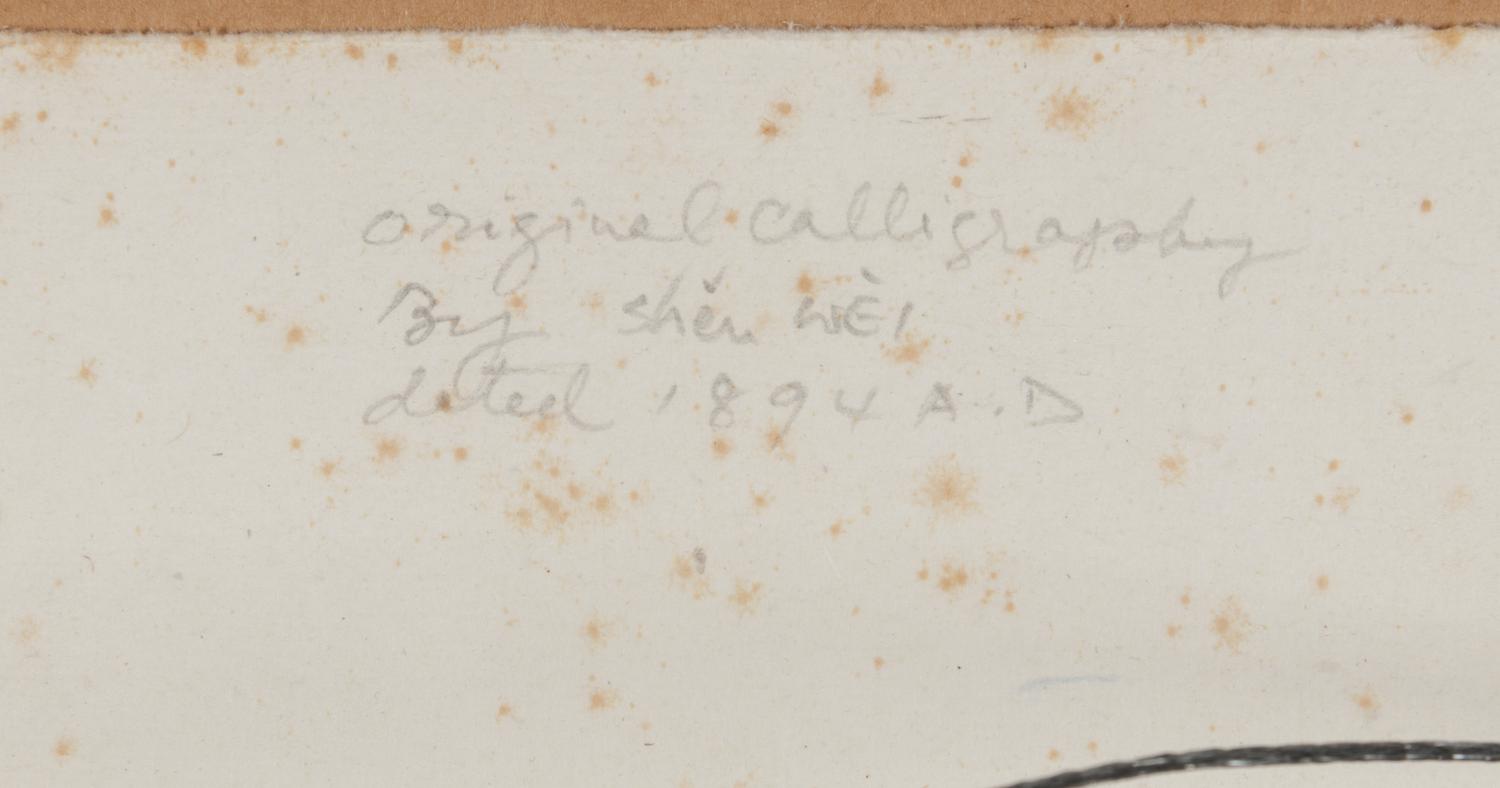 original calligraphy
By shěn WÈI
dated 1894 A.D